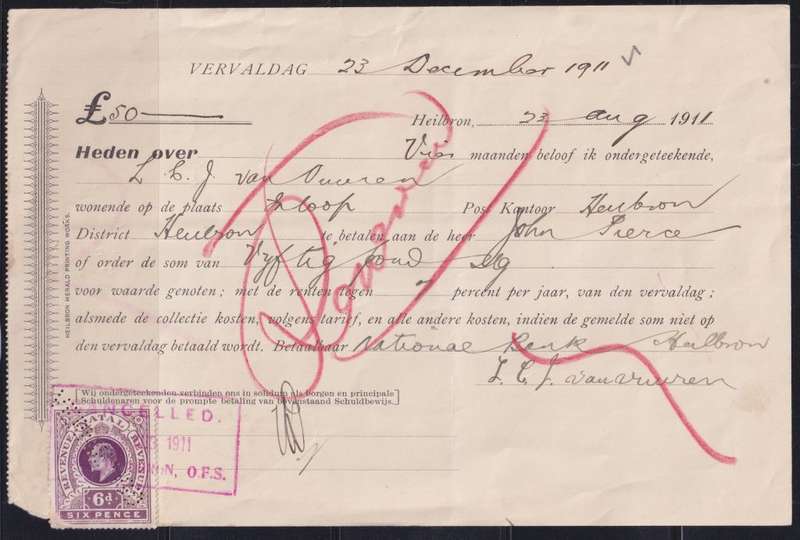 VERVALDAG 23 December 1911
£50 Heilbron, 23 Aug 1911
Heden over Vier maanden beloof ik ondergeteekende,
L. C. J. van Vuuren
wonende op de plaats Post Kantoor Heilbron
District Heilbron te betalen aan de heer John Pierce
of order de som van Vyftig pond Stg
voor waarde genoten; met de renten tegen percent per jaar, van den vervaldag;
alsmede de collectie kosten, volgens tarief, en alle andere kosten, indien de gemelde som niet op
den vervaldag betaald wordt. Betaalbaar Nationale Bank Heilbron
L. C. J. van Vuuren
Wij ondergeteekenden verbinden ons in solidum als borgen en principale
Schuldenaren voor de prompte betaling van bovenstaand Schuldbewijs.
HEILBRON HERALD PRINTING WORKS.
CANCELLED.
1911
O.F.S.
REVENUE NATAL REVENUE
6d
SIX PENCE